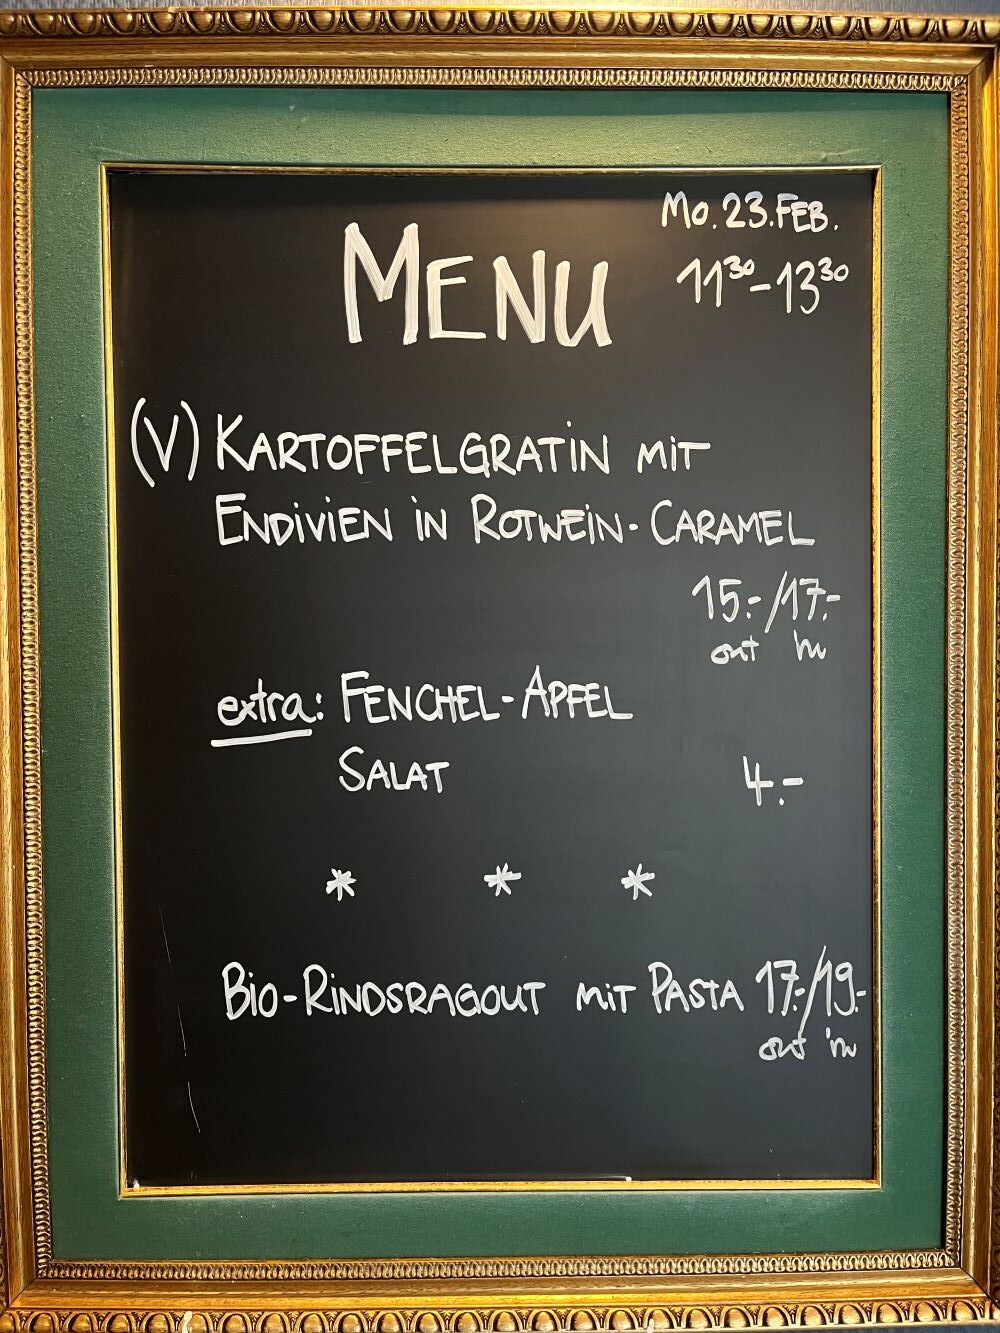 Mo. 23. FEB.
MENU
11³⁰-13³⁰
(V) KARTOFFELGRATIN MIT
ENDIVIEN IN ROTWEIN-CARAMEL
15.-/17.-
out in
extra: FENCHEL-APFEL
SALAT 4.-
* * *
BIO-RINDSRAGOUT MIT PASTA 17.-/19.-
out in